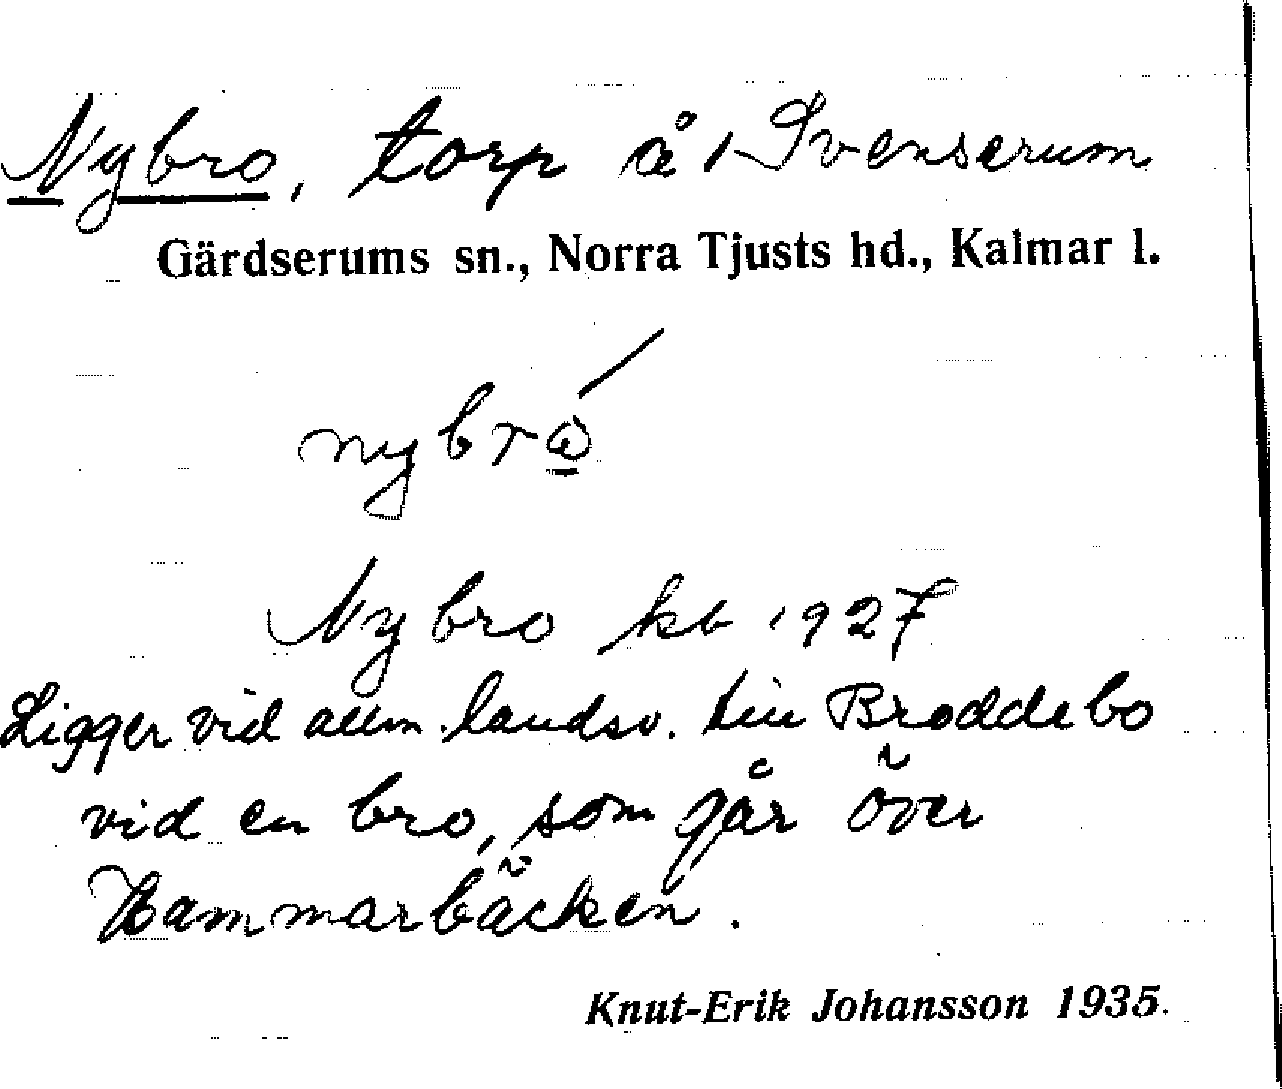 Nybro, torp å 1 Svenserum
Gärdserums sn., Norra Tjusts hd., Kalmar l.
Nybro kb 1927
Ligger vid allm. landsv. till Broddebo
vid en bro, som går över
Hammarbäcken.
Knut-Erik Johansson 1935.